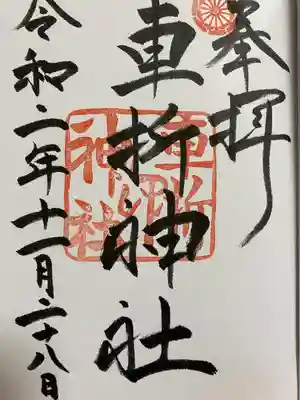 奉拝
車折神社
車折神社
令和二年十一月二十八日